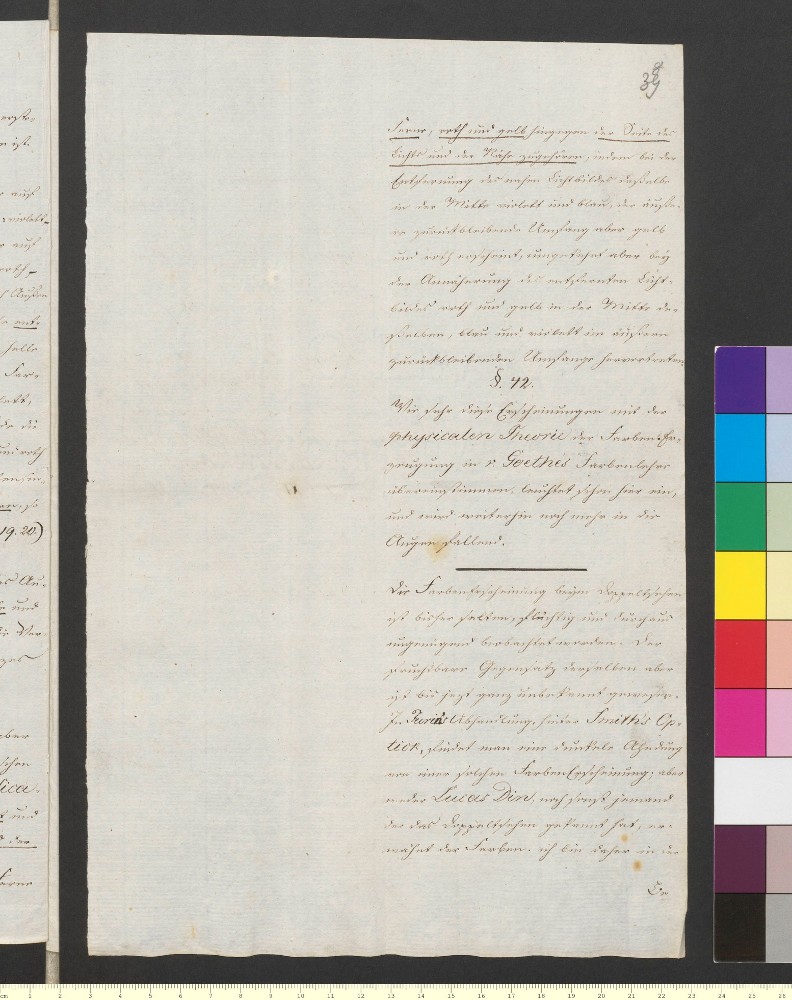 39
Ferne, roth und gelb hingegen der Seite des
Lichts und der Nähe zugehören, indem bei der
Entfernung des nahen Lichtbildes daßelbe
in der Mitte violett und blau, der äuße-
re zurückbleibende Umfang aber gelb
und roth erscheint, umgekehrt aber bey
der Annäherung des entfernten Licht-
bildes roth und gelb in der Mitte de-
ßelben, blau und violett im äußern
zurückbleibenden Umfange hervortreten
§. 42.
Wie sehr diese Erscheinungen mit der
physicalen Theorie der Farben-Er-
zeugung in v. Goethes Farbenlehre
übereinstimmen, leuchtet schon hier ein,
und wird weiterhin noch mehr in die
Augen fallend.
Die Farbenerscheinung beym Doppeltsehen
ist bisher selten, flüchtig und durchaus
ungenügend beobachtet worden. Der
fruchtbare Gegensatz derselben aber
ist bis jezt ganz unbekannt gewesen.
In Jurins Abhandlung, hinter Smiths Op-
tick, findet man eine dunkele Ahndung
von einer solchen FarbenErscheinung; aber
weder Lucas Din, noch sonst jemand
der das Doppeltsehen gekannt hat, er-
wähnt der Farben. ich bin daher in der